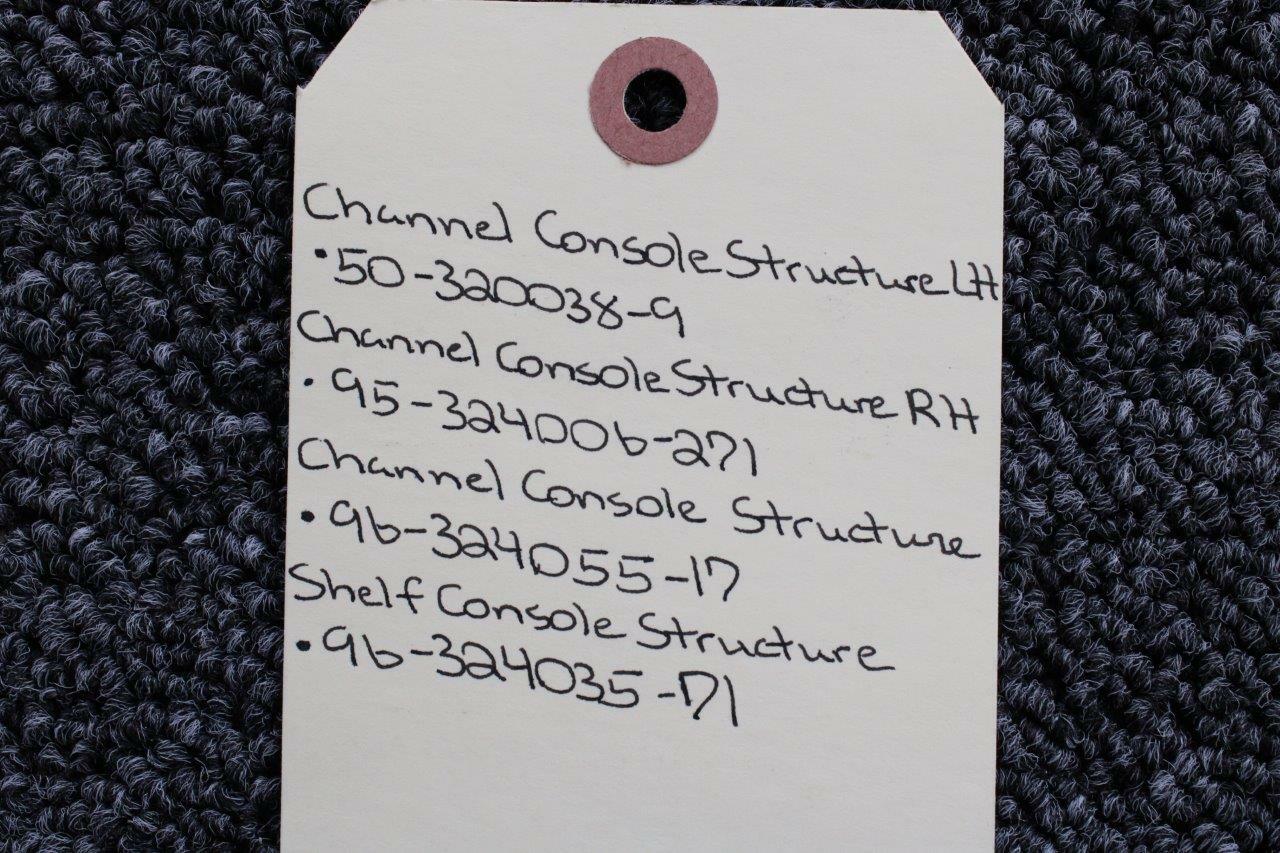 Channel Console Structure LH
• 50-320038-9
Channel Console Structure RH
• 95-324006-271
Channel Console Structure
• 96-324055-17
Shelf Console Structure
• 96-324035-171